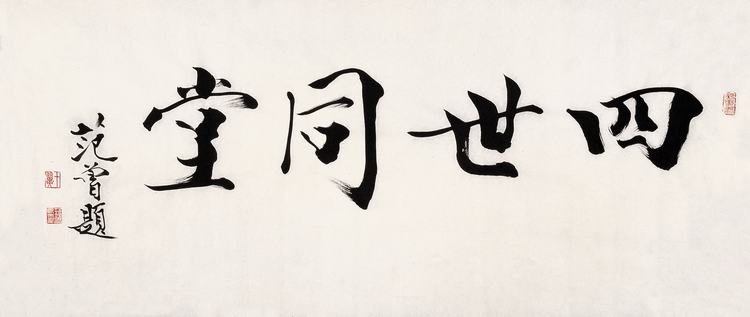 四世同堂
范曾題